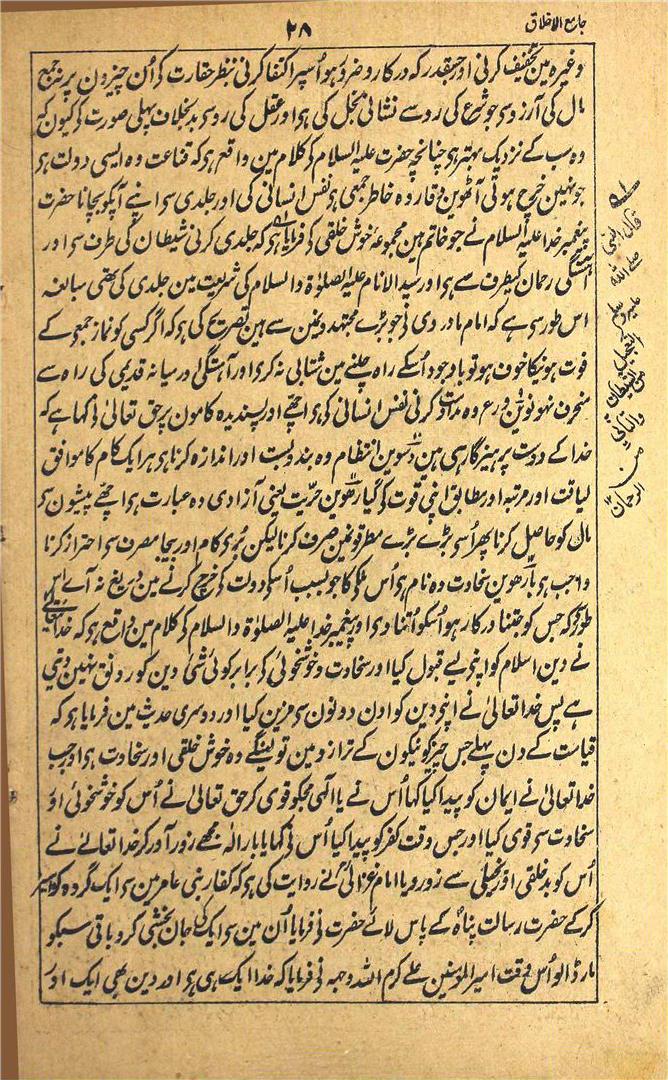 جامع الاخلاق
۲۸
وغیرہ مین تخفیف کرنی اور جسقدر کہ درکار و ضرور ہو اُسپر اکتفا کرنی نہ نظر حقارت کو اُن چیزون پر نہ جمع
مال کی آرزو سی جو شرع کی رو سے نشانی بخل کی ہی اور عقل کی رو سی بد بخلاف پہلی صورت کی کیون کہ
وہ سب کے نزدیک بہتر ہی چنانچہ حضرت علیہ السلام کی کلام مین واقع ہو کہ قناعت وہ ایسی دولت ہی
جو نہین خرچ ہوتی آٹھوین وقار وہ خاطر جمعی ہی نفس انسانی کی اور جلدی سی اپنے آپکو بچانا حضرت
پیغمبر خدا علیہ السلام نے جو خاتم ہین مجموعہ خوش خلقی کی فرمایا ہی کہ جلدی کرنی شیطان کی طرف سی اور
آہستگی رحمان کیطرف سے ہی اور سید الانام علیہ الصلوٰۃ والسلام کی شریعت مین جلدی کی نفی مبالغہ
اس طور سی ہے کہ امام ماوردی نی جو بڑے مجتہدونمین سے ہین تصریح کی ہی کہ اگر کسی کو نماز جمعی کے
فوت ہونیکا خوف ہو تو باوجود اُسکے راہ چلنے مین شتابی نہ کری اور آہستگی اور میانہ قدمی کی راہ سے
منحرف نہو نوین ورع وہ مداومت کرنی نفس انسانی کی ہی اچھے اور پسندیدہ کامون پر حق تعالیٰ نی کہا ہے کہ
خدا کے دوست پرہیزگار ہی ہین دسوین انتظام وہ بندوبست اور اندازہ کرنا ہی ہر ایک کام کا موافق
لیاقت اور مرتبہ اور مطابق اپنی قوت کی گیارھوین حرّیت یعنی آزادی وہ عبارت ہی اچھے پیشون سی
مال کو حاصل کرنا پھر اُسی بڑے بڑے مطرقونمین صرف کرنا لیکن بُری کام اور بیجا مصرف سی احتراز کرنا
واجب ہی بارھوین سخاوت وہ نام ہی اُس ملکہ کا جو بسبب اُسکی دولت کی خرچ کرنے مین دریغ نہ آے اس
طور کہ جس کو جتنا درکار ہو اُسکو اُتنا دی اور پیغمبر خدا علیہ الصلوٰۃ والسلام کی کلام مین واقع ہو کہ خدا
نے دین اسلام کو اپنی لیے قبول کیا اور سخاوت و خوشخوئی کی برابر کوئی شئ دین کو رونق نہین دیتی
ہے پس خدا تعالیٰ نے اپنی دین کو اون دونون سی مزین کیا اور دوسری حدیث مین فرمایا ہو کہ
قیامت کے دن پہلے جس چیز کو نیکون کے ترازو مین تولینگے وہ خوش خلقی اور سخاوت ہو اور جب
خدا تعالیٰ نے ایمان کو پیدا کیا کہا اُس نے یا الٰہی مجکو قوی کر حق تعالیٰ نے اُس کو خوشخوئی اور
سخاوت سی قوی کیا اور جس وقت کفر کو پیدا کیا اُس نی کہا یا بار الٰہ مجھے زور آور کر خدا تعالےٰ نے
اُس کو بد خلقی اور بخیلی سے زور دیا امام غزالی نے روایت کی ہی کہ کفار بنی عامر مین سی ایک گروہ کو اسیر
کر کے حضرت رسالت پناہ کے پاس لائے حضرت نی فرمایا اُن مین سی ایک کی جان بخشی کرو باقی سبکو
مار ڈالو اُس وقت امیر المؤمنین علی کرم اللہ وجہہ نی فرمایا کہ خدا ایک ہی ہی اور دین بھی ایک اور
قال النبی
صلی اللہ
علیہ وسلم
التعجیل
من الشیطان
والتانی
من
الرحمان